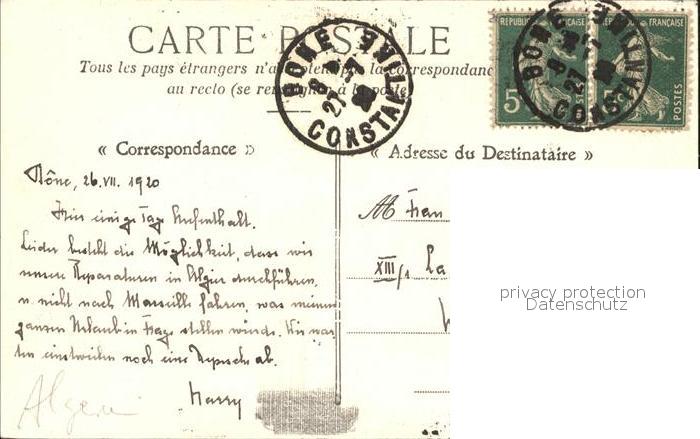 CARTE POSTALE
Tous les pays étrangers n'a la correspondance
au recto (se renseigner à la poste)
BONE
8
27 -7
20
CONSTANTINE
REPUBLIQUE FRANÇAISE
5c
POSTES
BONE
8
27 -7
CONSTANTINE
« Correspondance »
« Adresse du Destinataire »
Bône, 26.VII. 1920
Hier einige Tage Aufenthalt.
Leider besteht die Möglichkeit, dass wir
unsere Reparaturen in Algier durchführen
u. nicht nach Marseille fahren, was meinen
ganzen Urlaub in Frage stellen würde. Wir war
ten einstweilen noch eine Depesche ab.
Harry
Frau
XIII/1 La
privacy protection
Datenschutz
Algeri